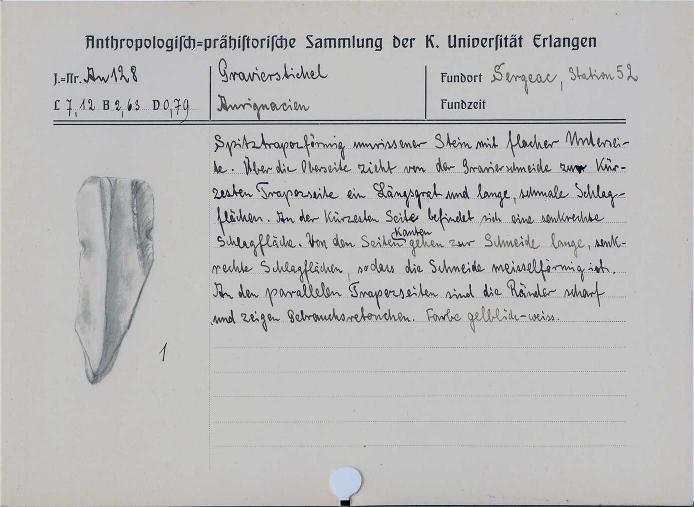 Anthropologisch=prähistorische Sammlung der K. Universität Erlangen
J.=Nr. An 128
Gravierstichel
Fundort Sergeac, Station 52
L 7,12 B 2,63 D 0,79
Aurignacien
Fundzeit
Spitztrapezförmig umrissener Stein mit flacher Untersei-
te. Über die Oberseite zieht von der Gravierschneide zur Kür-
zesten Trapezseite ein Längsgrat und lange, schmale Schlag-
flächen. An der Kürzesten Seite befindet sich eine senkrechte
Schlagfläche. Von den Seiten Kanten gehen zur Schneide lange, senk-
rechte Schlagflächen, sodass die Schneide meisselförmig ist.
An den parallelen Trapezseiten sind die Ränder scharf
und zeigen Gebrauchsretouchen. Farbe gelblich-weiss.
1